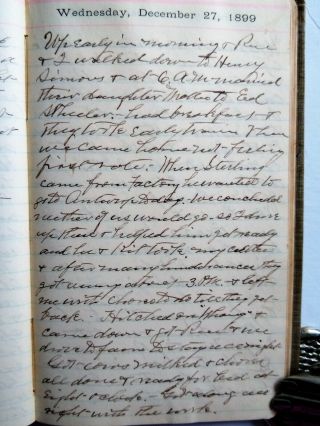 Wednesday, December 27, 1899
Up early in morning &
& I walked down to Henry
Simons & at 6 A.M. married
their daughter to Ed
Wheeler. had breakfast &
they took Early train then
we came home not feeling
first rate. When Sterling
came from factory he wanted to
go to Antwerp today. We concluded
neither of us would go. so I drove
up there & helped him get ready
and he & Kit took my cutter
& after many hindrances they
got away about 3. P.M. & left
me with chores to do till they get
back. Hitched on &
came down & got & we
drove to farm to stay over night
Got cows milked & chores
all done & ready for bed at
Eight o clock. Got along all
right with the work.